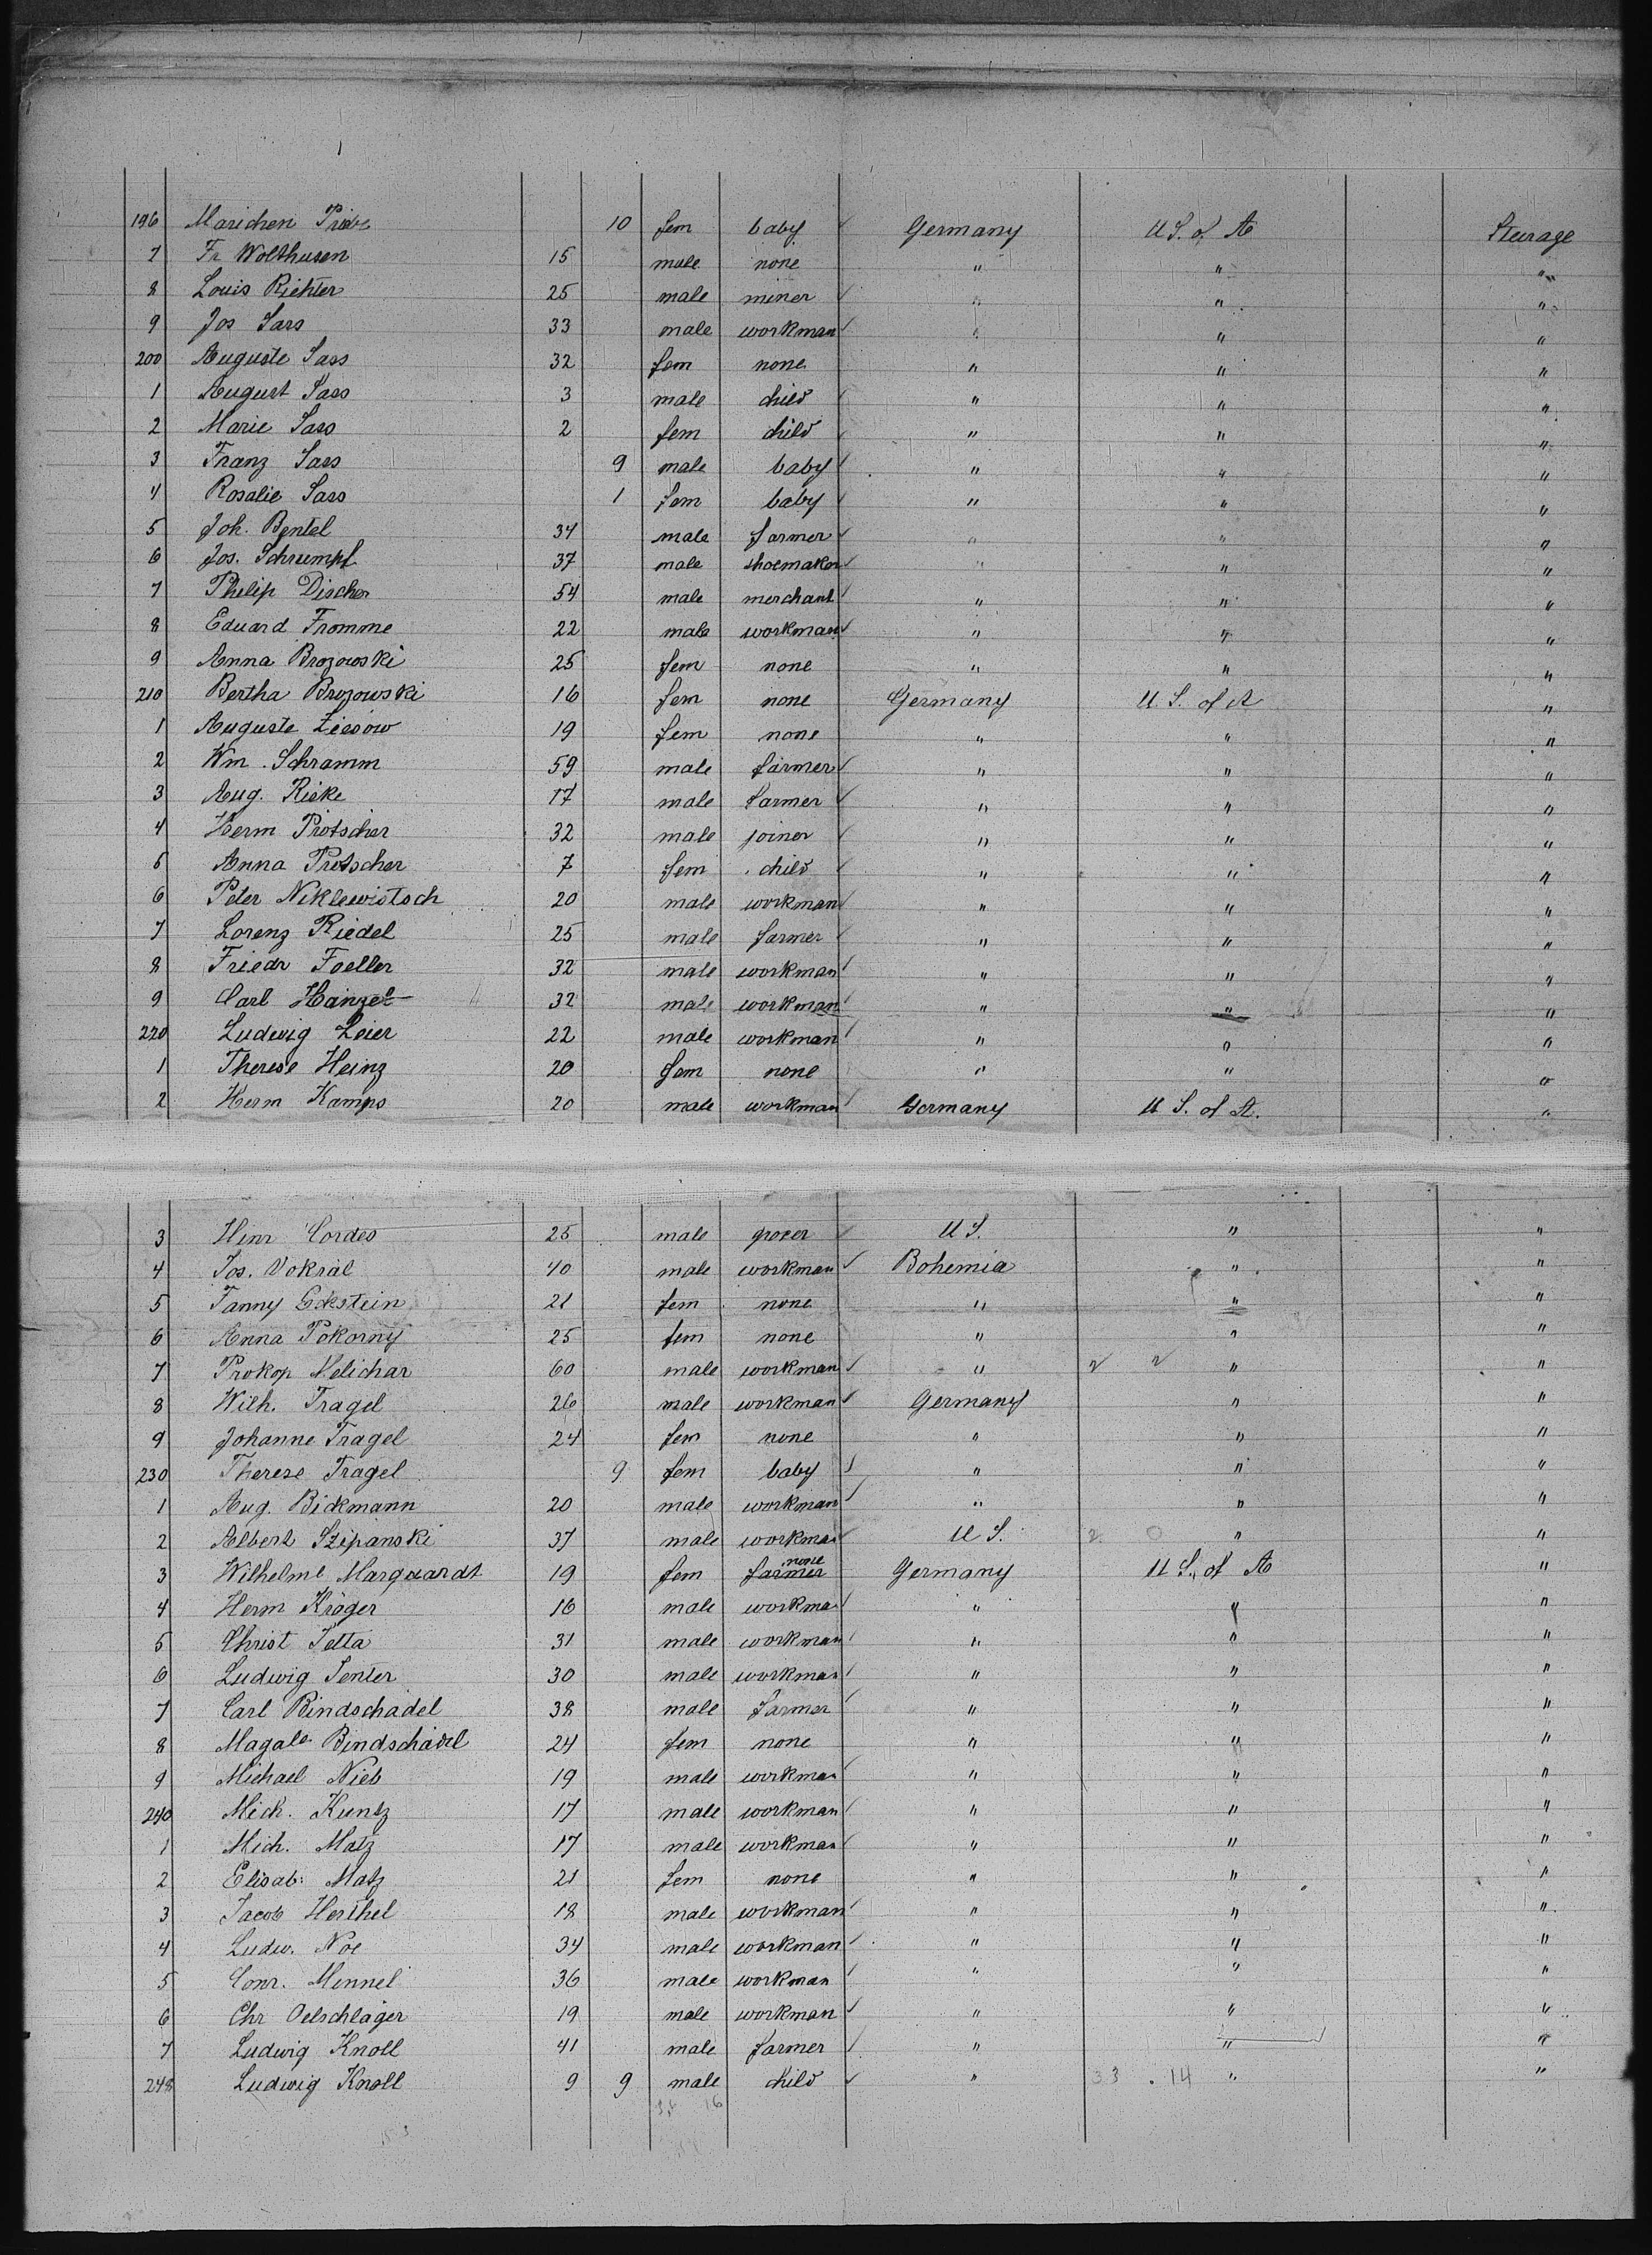 196 Marichen Priebe 10 fem baby Germany U S. of A Steerage
7 Fr Wolthusen 15 male none " " "
8 Louis Richter 25 male miner " " "
9 Jos Sass 33 male workman " " "
200 Auguste Sass 32 fem none " " "
1 August Sass 3 male child " " "
2 Marie Sass 2 fem child " " "
3 Franz Sass 9 male baby " " "
4 Rosalie Sass 1 fem baby " " "
5 Joh. Bentel 34 male farmer " " "
6 Jos. Schrumpf 37 male shoemaker " " "
7 Philip Discher 54 male merchant " " "
8 Eduard Fromme 22 male workman " " "
9 Anna Brozowski 25 fem none " " "
210 Bertha Brozowski 16 fem none Germany U. S. of A "
1 Auguste Ziesow 19 fem none " " "
2 Wm. Schramm 59 male farmer " " "
3 Aug. Rieke 17 male farmer " " "
4 Herm Protscher 32 male joiner " " "
5 Anna Protscher 7 fem child " " "
6 Peter Niklewistsch 20 male workman " " "
7 Lorenz Riedel 25 male farmer " " "
8 Friedr Foeller 32 male workman " " "
9 Carl Hänzel 32 male workman " " "
220 Ludwig Leier 22 male workman " " "
1 Therese Heinz 20 fem none " " "
2 Herm Kamps 20 male workman Germany U S. of A. "
3 Hinr Cordes 25 male grocer U S. " "
4 Jos. Vokral 40 male workman Bohemia " "
5 Fanny Eckstein 21 fem none " " "
6 Anna Pokorny 25 fem none " " "
7 Prokop Melichar 60 male workman " " "
8 Wilh. Tragel 26 male workman Germany " "
9 Johanne Tragel 24 fem none " " "
230 Therese Tragel 9 fem baby " " "
1 Aug. Bickmann 20 male workman " " "
2 Albert Szipanski 37 male workman U S. 2 0 " "
3 Wilhelme Marquardt 19 fem farmer none Germany U S. of A "
4 Herm Kröger 16 male workma " " "
5 Christ Jetta 31 male workman " " "
6 Ludwig Senter 30 male workman " " "
7 Carl Bindschädel 38 male farmer " " "
8 Magale Bindschädel 24 fem none " " "
9 Michael Nieb 19 male workman " " "
240 Mich. Kuntz 17 male workman " " "
1 Mich. Matz 17 male workman " " "
2 Elisab: Matz 21 fem none " " "
3 Jacob Herthel 18 male workman " " "
4 Ludw. Noe 34 male workman " " "
5 Conr. Mennel 36 male workman " " "
6 Chr Oelschläger 19 male workman " " "
7 Ludwig Knoll 41 male farmer " " "
248 Ludwig Knoll 9 9 male child " 33 . 14 " "